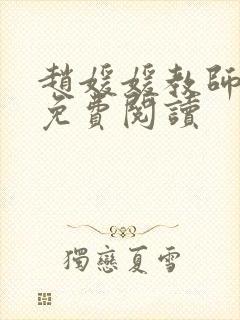 趙媛媛教師
免費閱讀
獨戀夏雪